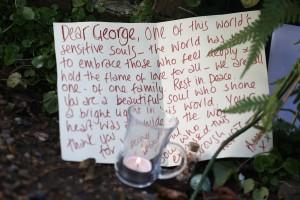 Dear George, One of this world's
sensitive souls - the world has
to embrace those who feel deeply &
hold the flame of love for all - we are all
one - of one family. Rest in Peace.
You are a beautiful soul who shone
a bright light in this world. Your
heart was
Thank you
for